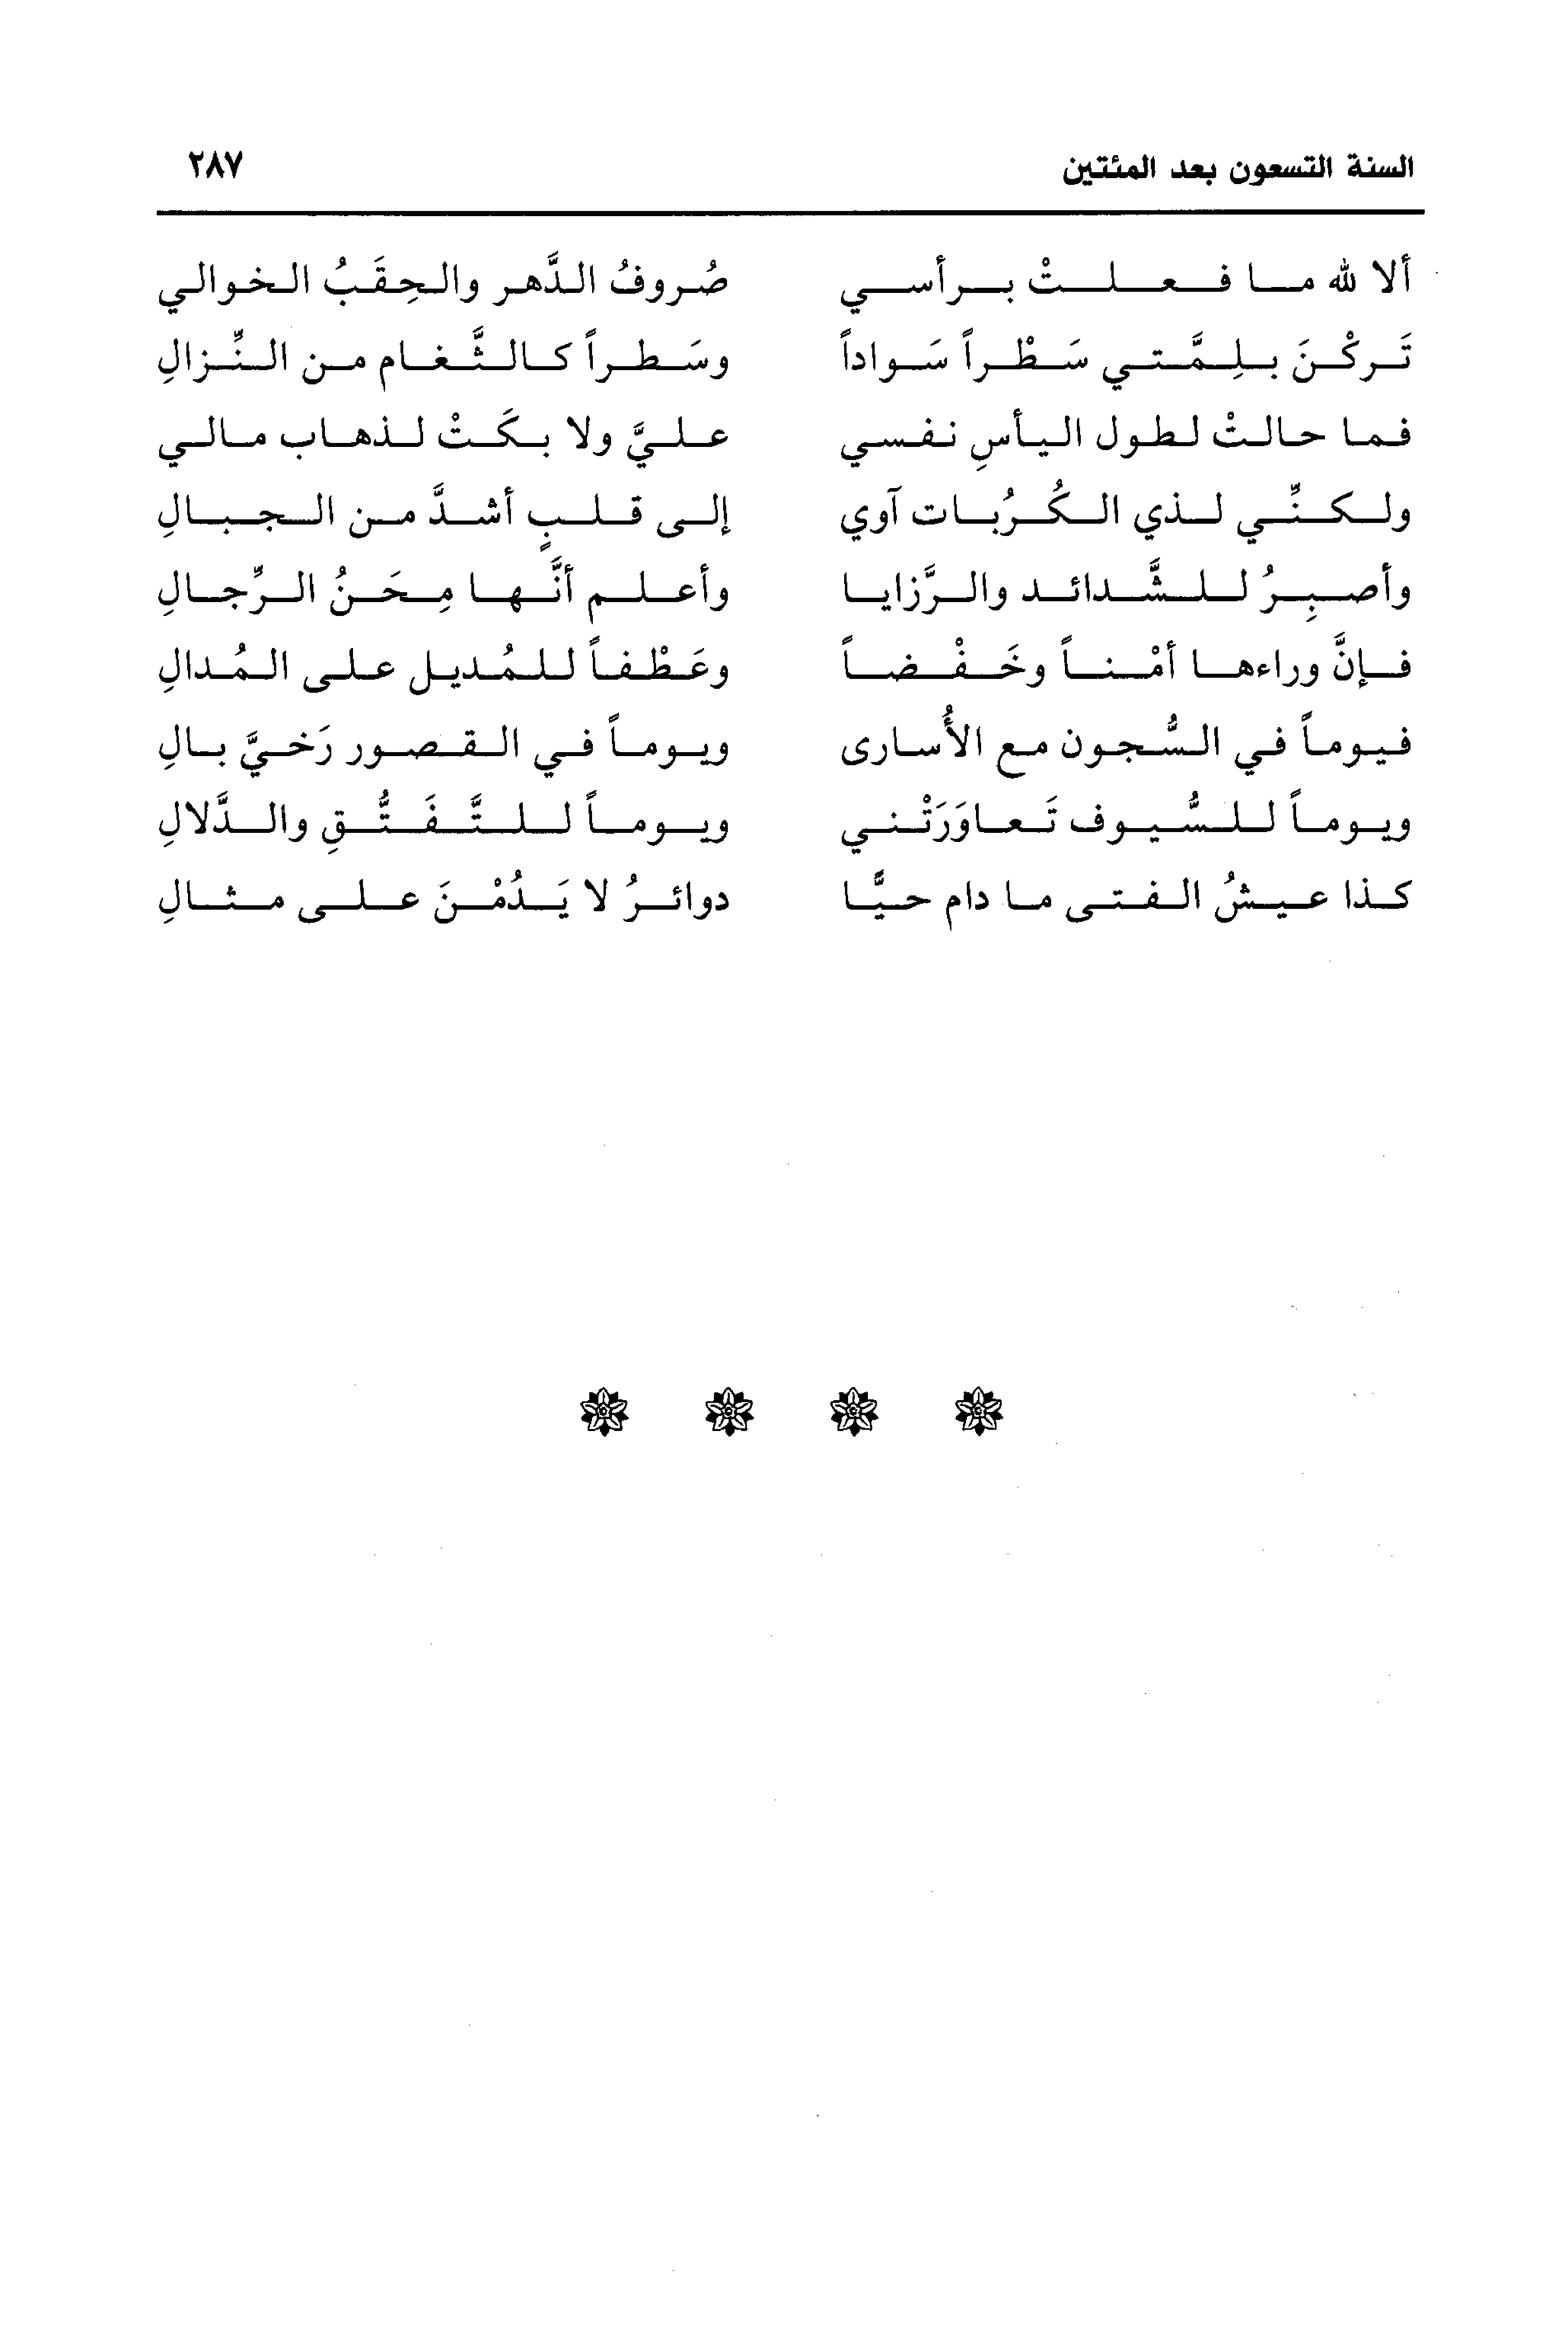 السنة التسعون بعد المئتين ٢٨٧
ألا لله ما فعلتْ برأسي صُروفُ الدَّهر والحِقَبُ الخوالي
تَركْنَ بلِمَّتي سَطْراً سَواداً وسَطراً كالثَّغام من النِّزالِ
فما حالتْ لطول اليأسِ نفسي عليَّ ولا بكَتْ لذهاب مالي
ولكنِّي لذي الكُرُبات آوي إلى قلبٍ أشدَّ من الجبالِ
وأصبِرُ للشَّدائد والرَّزايا وأعلم أنَّها مِحَنُ الرِّجالِ
فإنَّ وراءها أمْناً وخَفْضاً وعَطْفاً للمُديل على المُدالِ
فيوماً في السُّجون مع الأُسارى ويوماً في القصور رَخيَّ بالِ
ويوماً للسُّيوف تَعاوَرَتْني ويوماً للتَّفَتُّقِ والدَّلالِ
كذا عيشُ الفتى ما دام حيًّا دوائرُ لا يَدُمْنَ على مثالِ